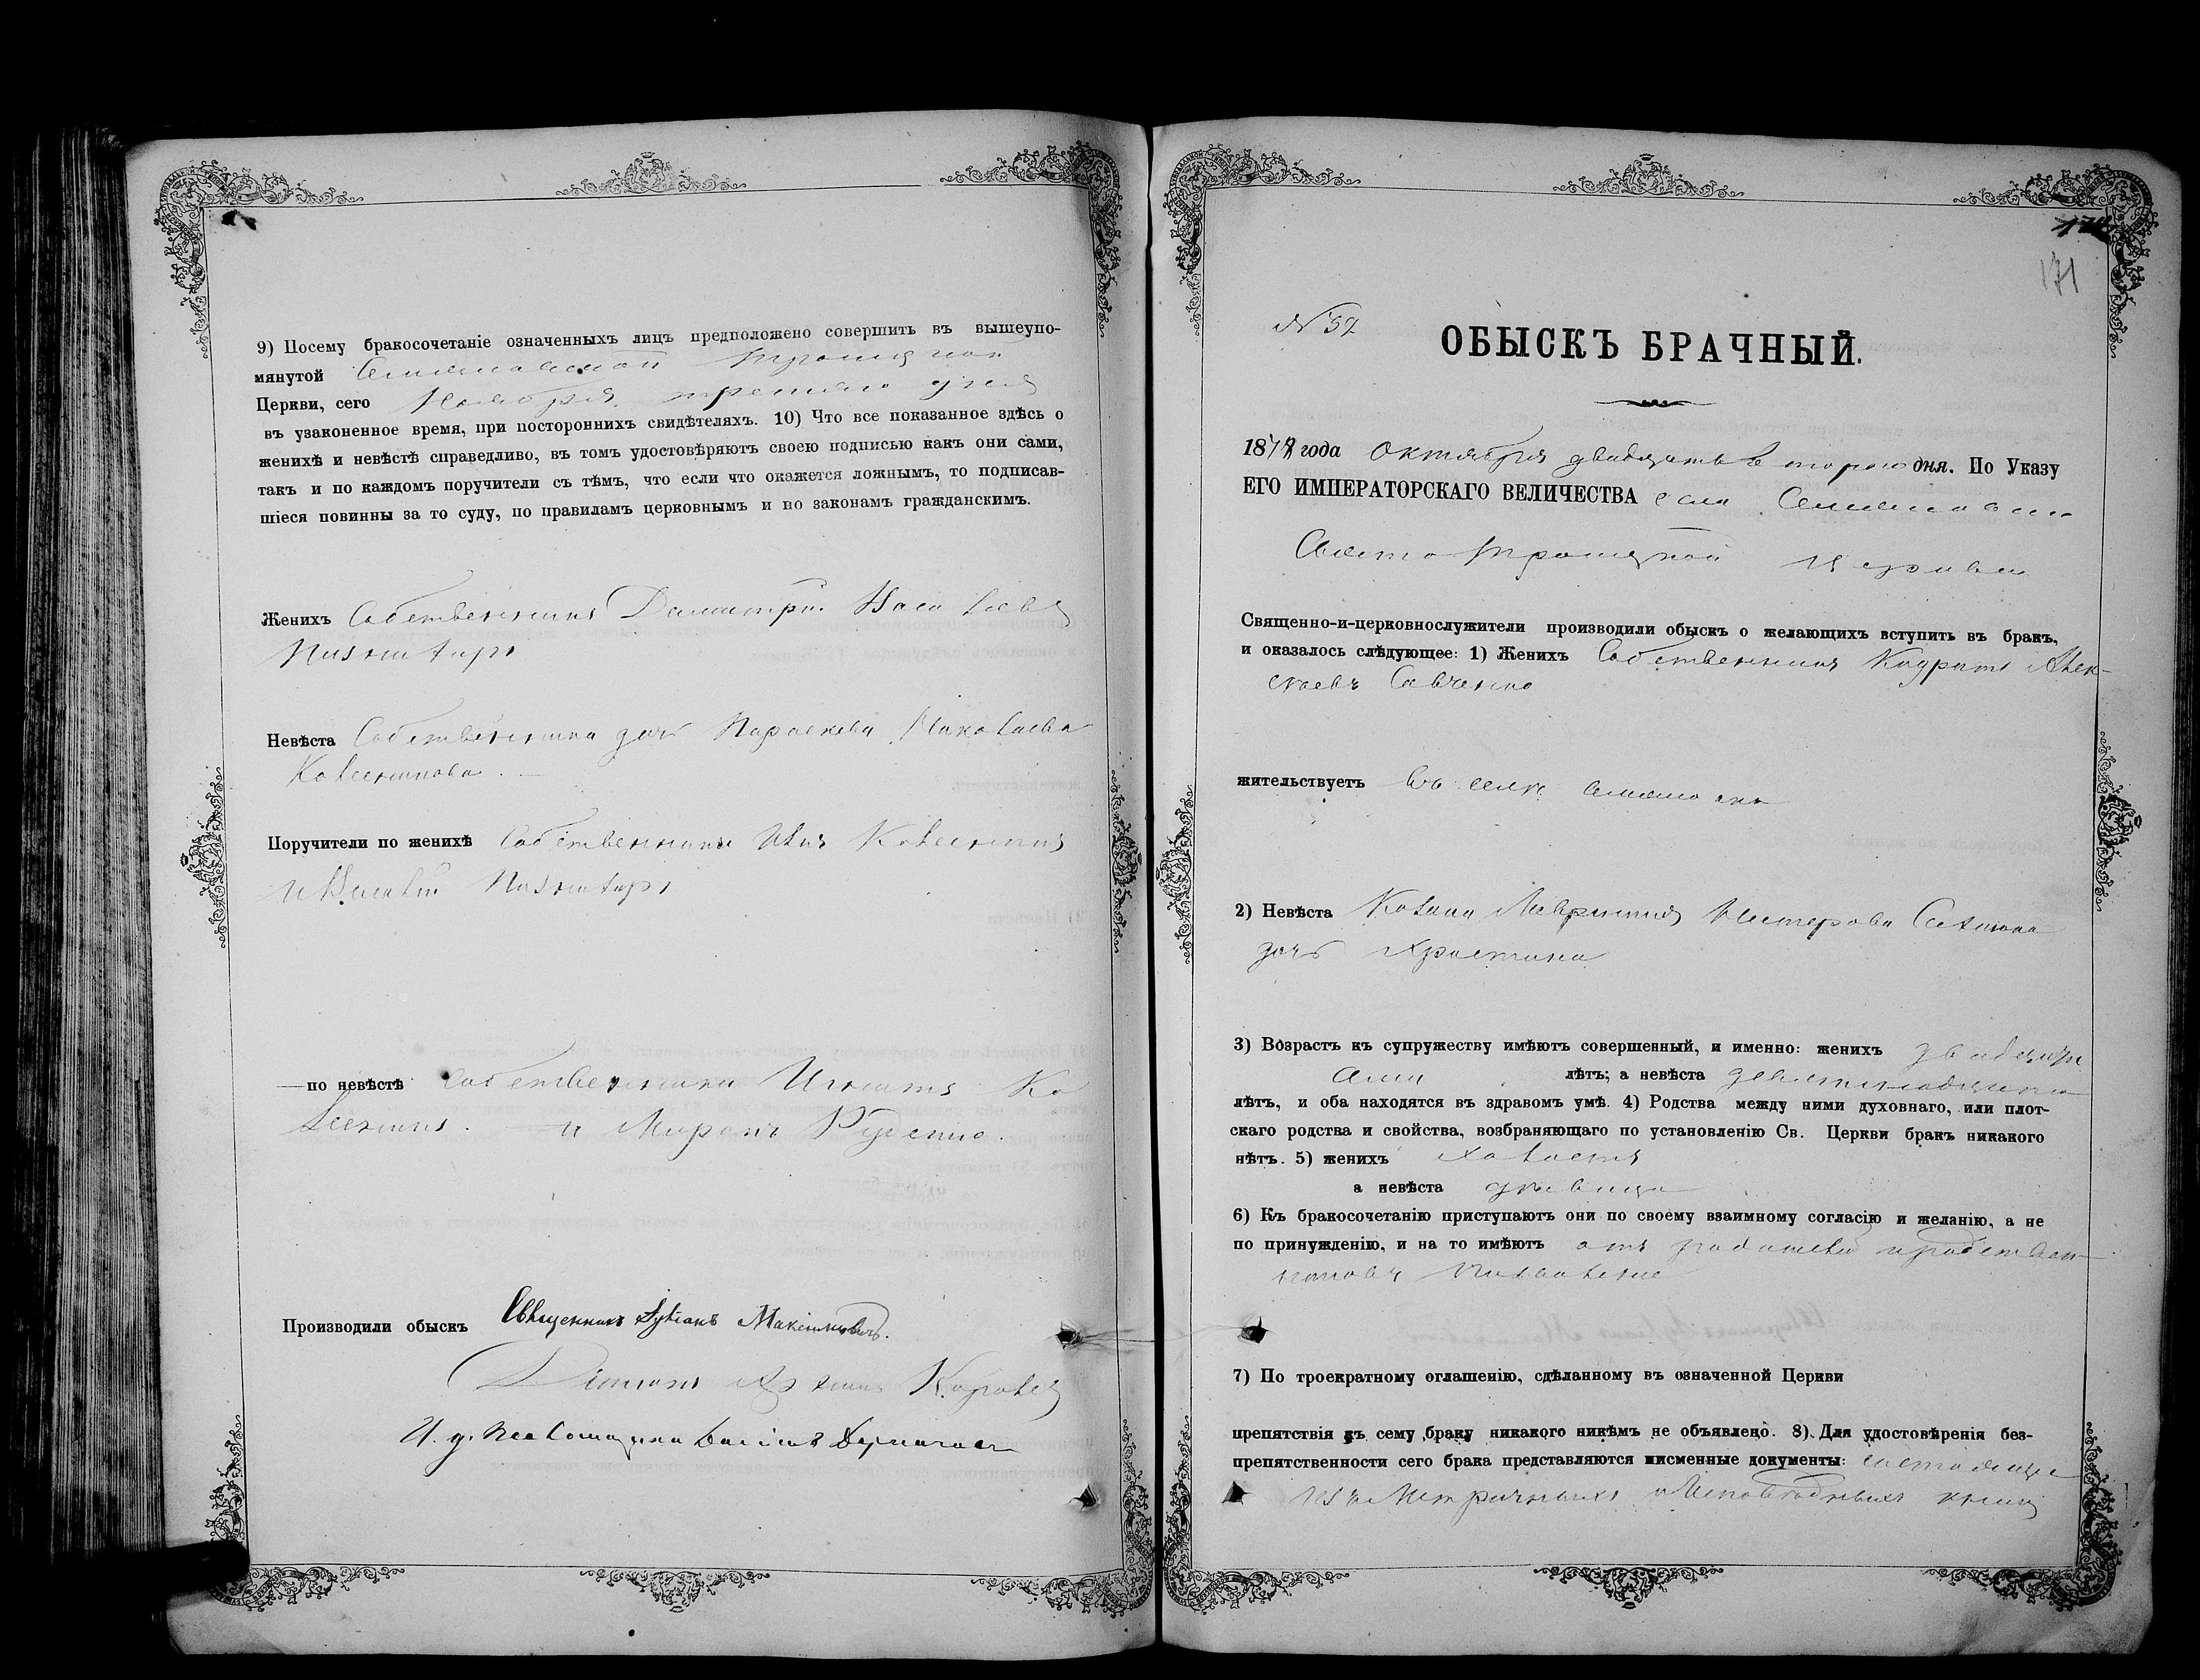 9) Посему бракосочетаніе означенныхъ лицъ предположено совершить въ вышеупо-
мянутой Троицкой
Церкви, сего Ноября третьяго дня
въ узаконенное время, при постороннихъ свидѣтеляхъ. 10) Что все показанное здѣсь о
женихѣ и невѣстѣ справедливо, въ томъ удостовѣряютъ своею подписью какъ они сами,
такъ и по каждомъ поручители съ тѣмъ, что если что окажется ложнымъ, то подписав-
шіеся повинны за то суду, по правиламъ церковнымъ и по законамъ гражданскимъ.
Женихъ Собственникъ Димитрій
Невѣста Собственника дочь Параскева Николаева
Поручители по женихѣ Собственники
и
—по невѣстѣ Собственники Игнатъ
и Миронъ Руденко.
Производили обыскъ Священникъ Лукіанъ Максимовичъ.
И. д. Псаломщика
171
№ 57
ОБЫСКЪ БРАЧНЫЙ.
187 года Октября двадцать втораго дня. По Указу
ЕГО ИМПЕРАТОРСКАГО ВЕЛИЧЕСТВА села
Свято Троицкой церкви
Священно-и-церковнослужители производили обыскъ о желающихъ вступить въ бракъ,
и оказалось слѣдующее: 1) Женихъ Собственникъ Кодратъ Алек-
сѣевъ Савченко
жительствуетъ въ селѣ
2) Невѣста Козака Нестерова
дочь Христина
3) Возрастъ къ супружеству имѣютъ совершенный, и именно: женихъ двадцати
лѣтъ; а невѣста девятнадцати
лѣтъ, и оба находятся въ здравомъ умѣ. 4) Родства между ними духовнаго, или плот-
скаго родства и свойства, возбраняющаго по установленію Св. Церкви бракъ никакого
нѣтъ. 5) женихъ холостъ
а невѣста дѣвица
6) Къ бракосочетанію приступаютъ они по своему взаимному согласію и желанію, а не
по принужденію, и на то имѣютъ отъ родителей и родствен-
никовъ позволеніе
7) По троекратному оглашенію, сдѣланному въ означенной Церкви
препятствія къ сему браку никакого никѣмъ не объявлено. 8) Для удостовѣренія без-
препятственности сего брака представляются писменные документы: состоящіе
изъ Метричныхъ и Исповѣдныхъ книгъ